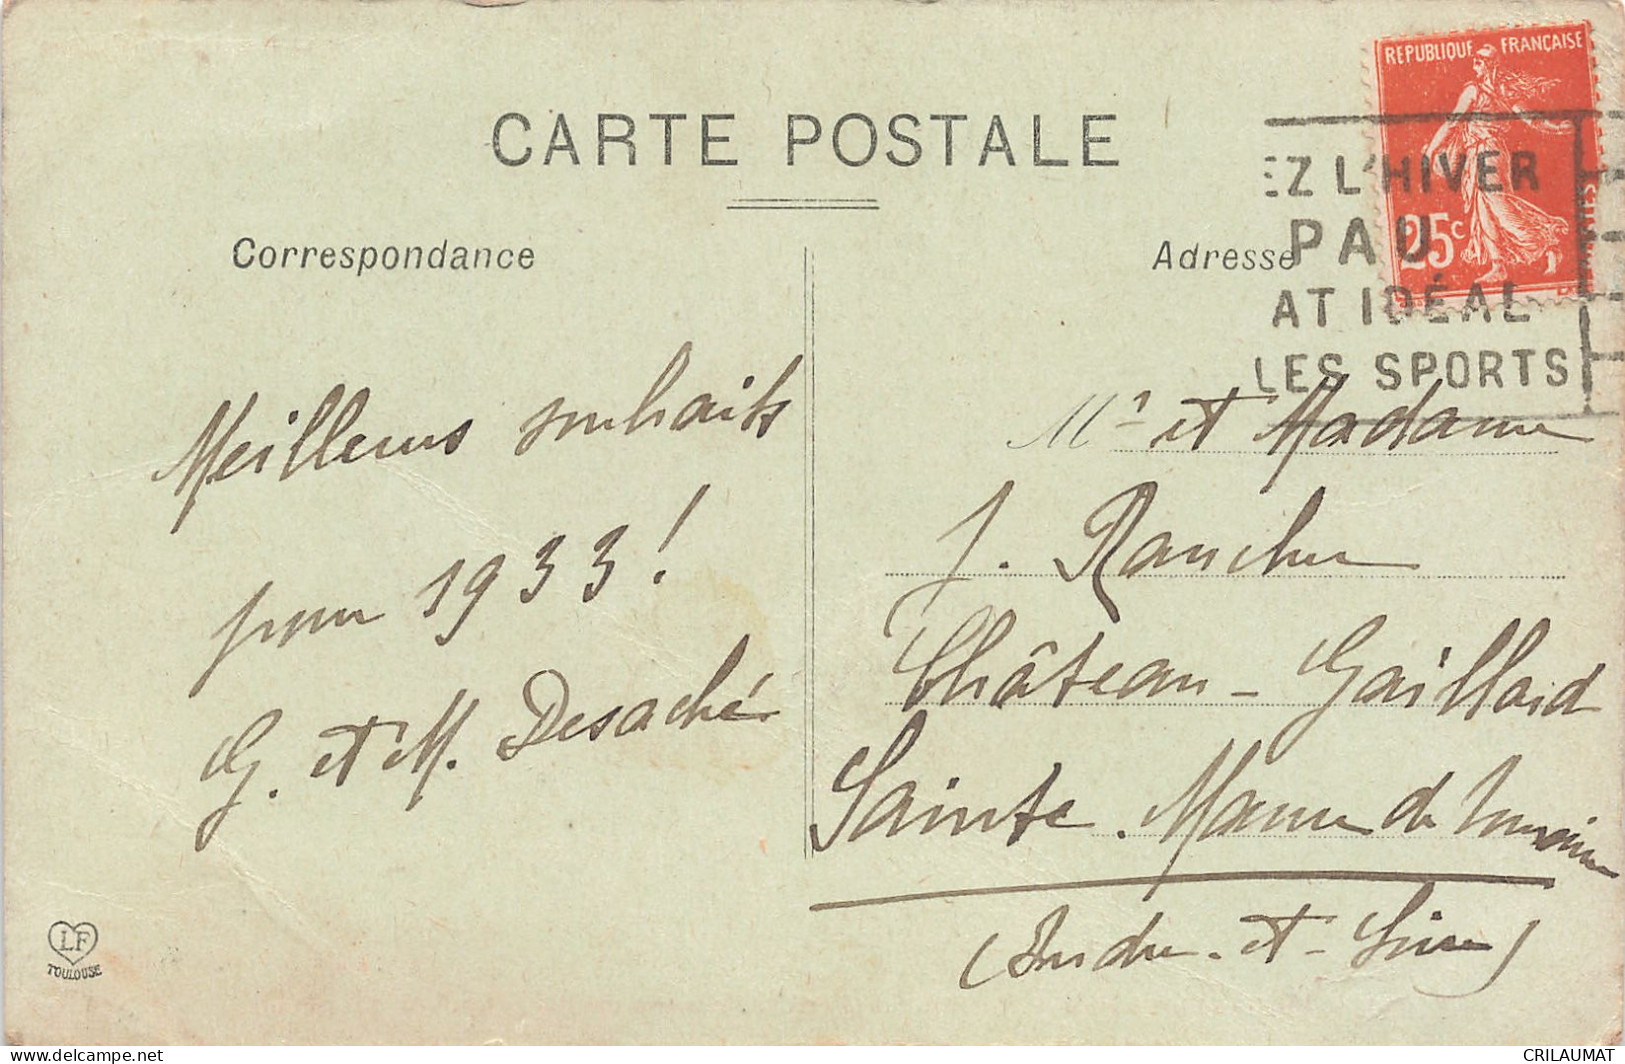 CARTE POSTALE
Correspondance
Adresse
REPUBLIQUE FRANÇAISE
25c
EZ L'HIVER
PAU
AT IDÉAL
LES SPORTS
Meilleurs souhaits
pour 1933!
G. et M. Desaché
Mr et Madame
J. Rancher
Château-Gaillard
Sainte. Maure de Touraine
(Indre-et-Loire)
LF
TOULOUSE
delcampe.net
CRILAUMAT